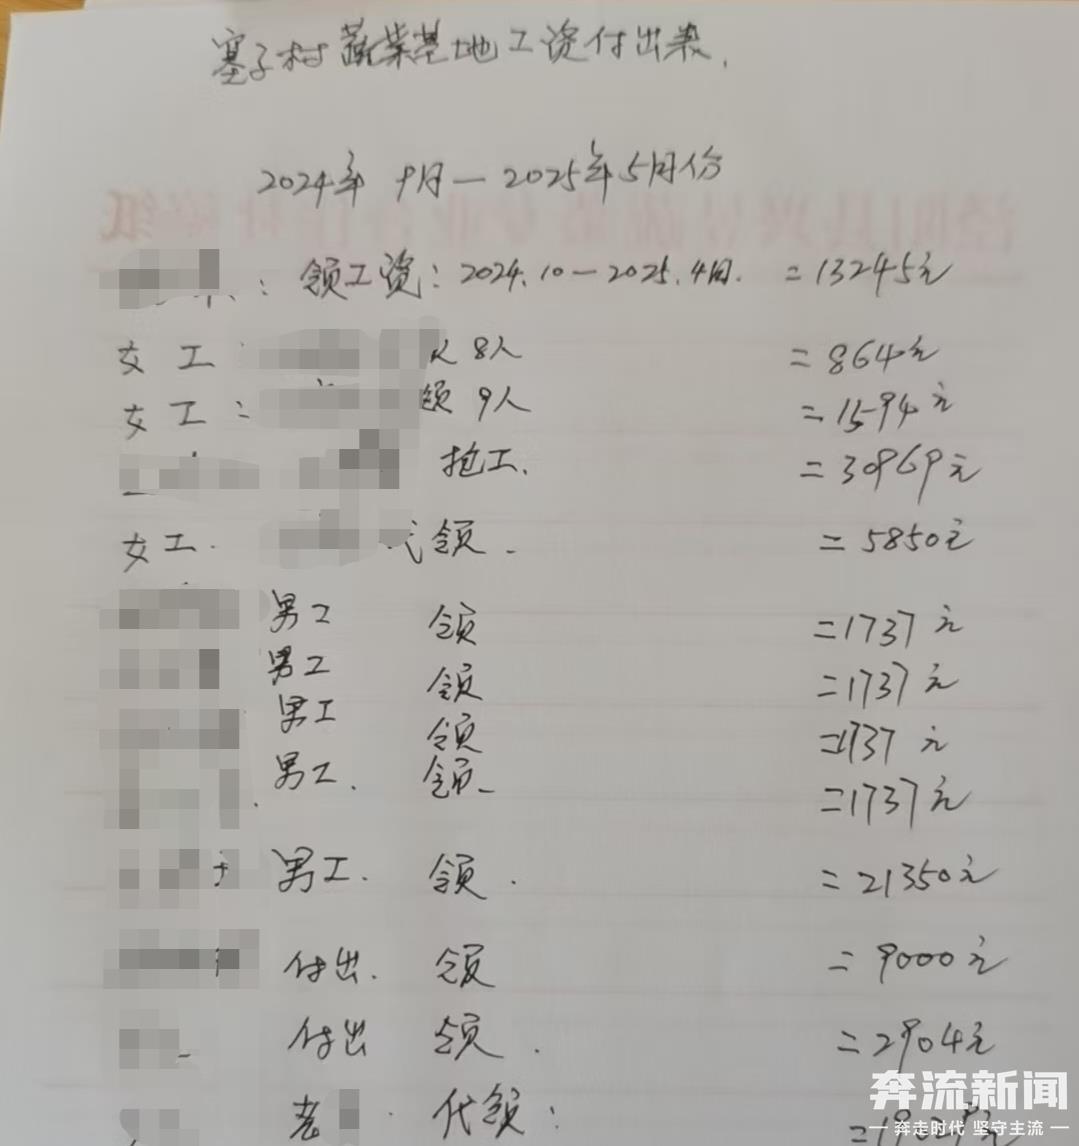 塞子村蔬菜基地工资付出表.
2024年 9月—2025年5月份
: 领工资: 2024.10—2025.4月. =13245元
女工: 8人 =864元
女工: 领 9人 =1594元
抢工. =30969元
女工. 代领. =5850元
男工 领 =1737元
男工 领 =1737元
男工 领 =1737元
男工. 领. =1737元
男工. 领. =21350元
付出. 领 =9000元
付出 领. =2904元
老 代领:
奔流新闻
奔走时代 坚守主流